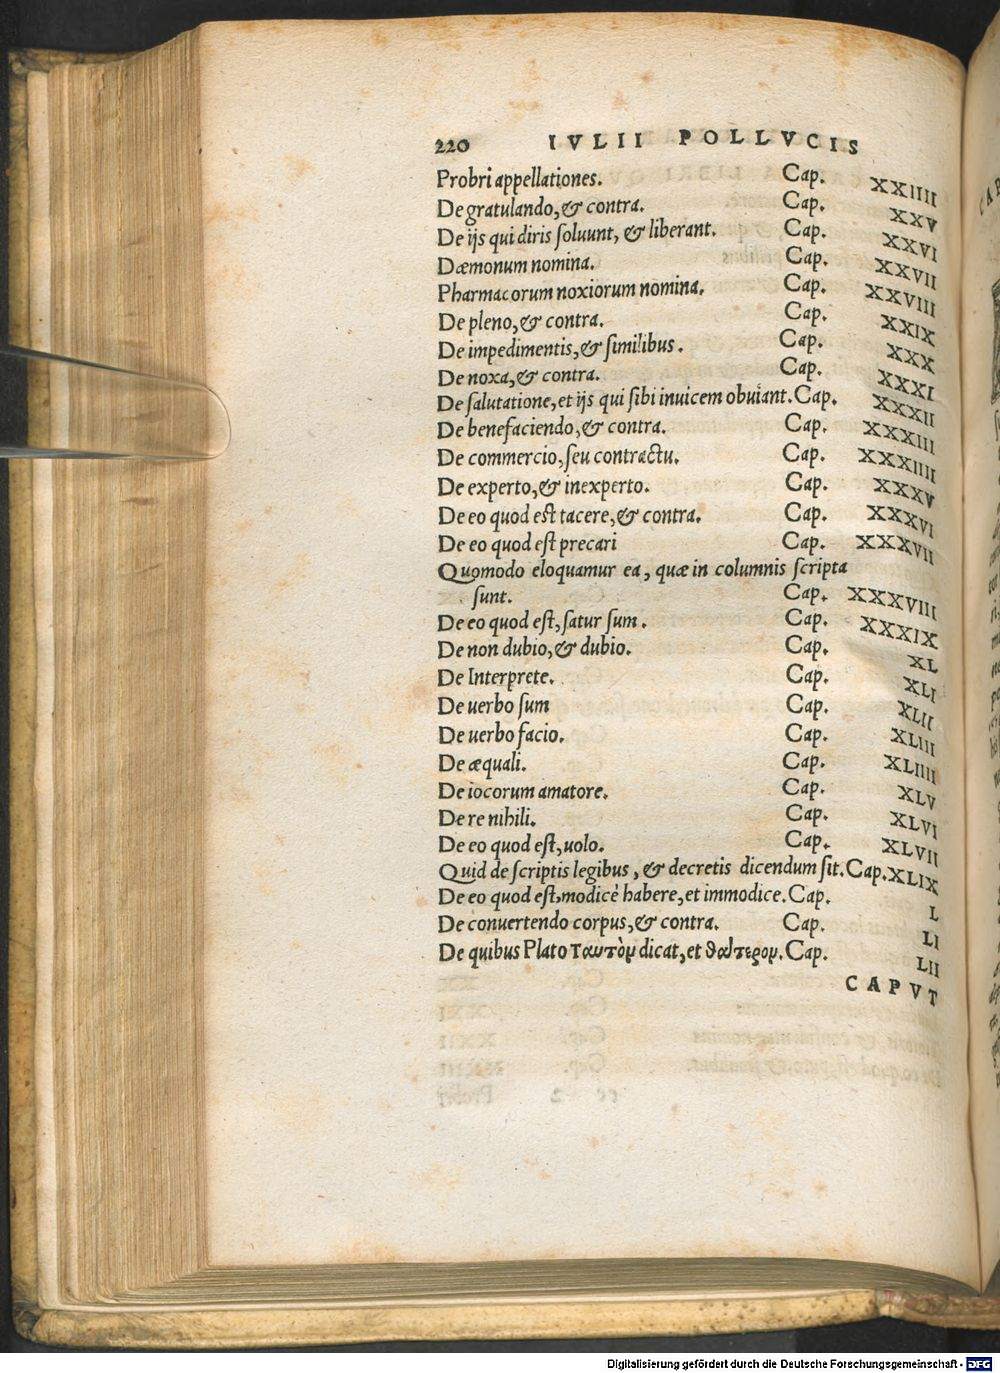 220 IVLII POLLVCIS
Probri appellationes. Cap. XXIIII
De gratulando, & contra. Cap. XXV
De ijs qui diris ſoluunt, & liberant. Cap. XXVI
Dæmonum nomina. Cap. XXVII
Pharmacorum noxiorum nomina. Cap. XXVIII
De pleno, & contra. Cap. XXIX
De impedimentis, & ſimilibus. Cap. XXX
De noxa, & contra. Cap. XXXI
De ſalutatione, et ijs qui ſibi inuicem obuiant. Cap. XXXII
De benefaciendo, & contra. Cap. XXXIII
De commercio, ſeu contractu. Cap. XXXIIII
De experto, & inexperto. Cap. XXXV
De eo quod eſt tacere, & contra. Cap. XXXVI
De eo quod eſt precari Cap. XXXVII
Quomodo eloquamur ea, quæ in columnis ſcripta
ſunt. Cap. XXXVIII
De eo quod eſt, ſatur ſum. Cap. XXXIX
De non dubio, & dubio. Cap. XL
De Interprete. Cap. XLI
De uerbo ſum Cap. XLII
De uerbo facio. Cap. XLIII
De æquali. Cap. XLIIII
De iocorum amatore. Cap. XLV
De re nihili. Cap. XLVI
De eo quod eſt, uolo. Cap. XLVII
Quid de ſcriptis legibus, & decretis dicendum ſit. Cap. XLIX
De eo quod eſt, modicè habere, et immodice. Cap. L
De conuertendo corpus, & contra. Cap. LI
De quibus Plato ταυτὸν dicat, et θάτερον. Cap. LII
CAPVT
Digitalisierung gefördert durch die Deutsche Forschungsgemeinschaft - DFG